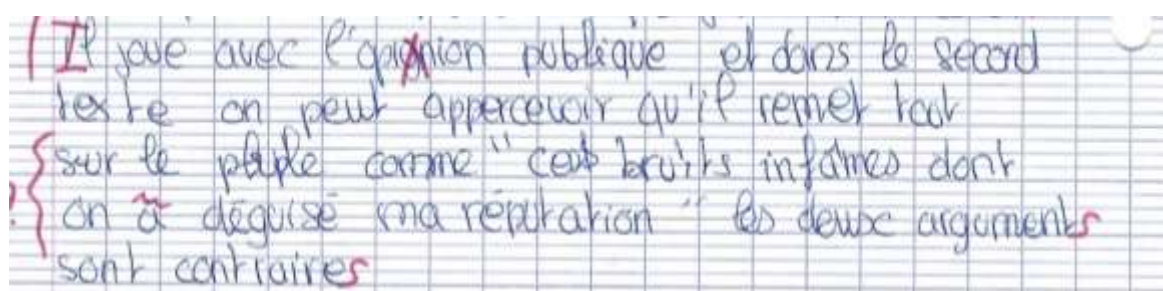 Il joue avec l'opinion publique et dans le second
texte on peut appercevoir qu'il remet tout
sur le peuple comme "ces bruits infâmes dont
on a déguisé ma réputation" les deux arguments
sont contraires